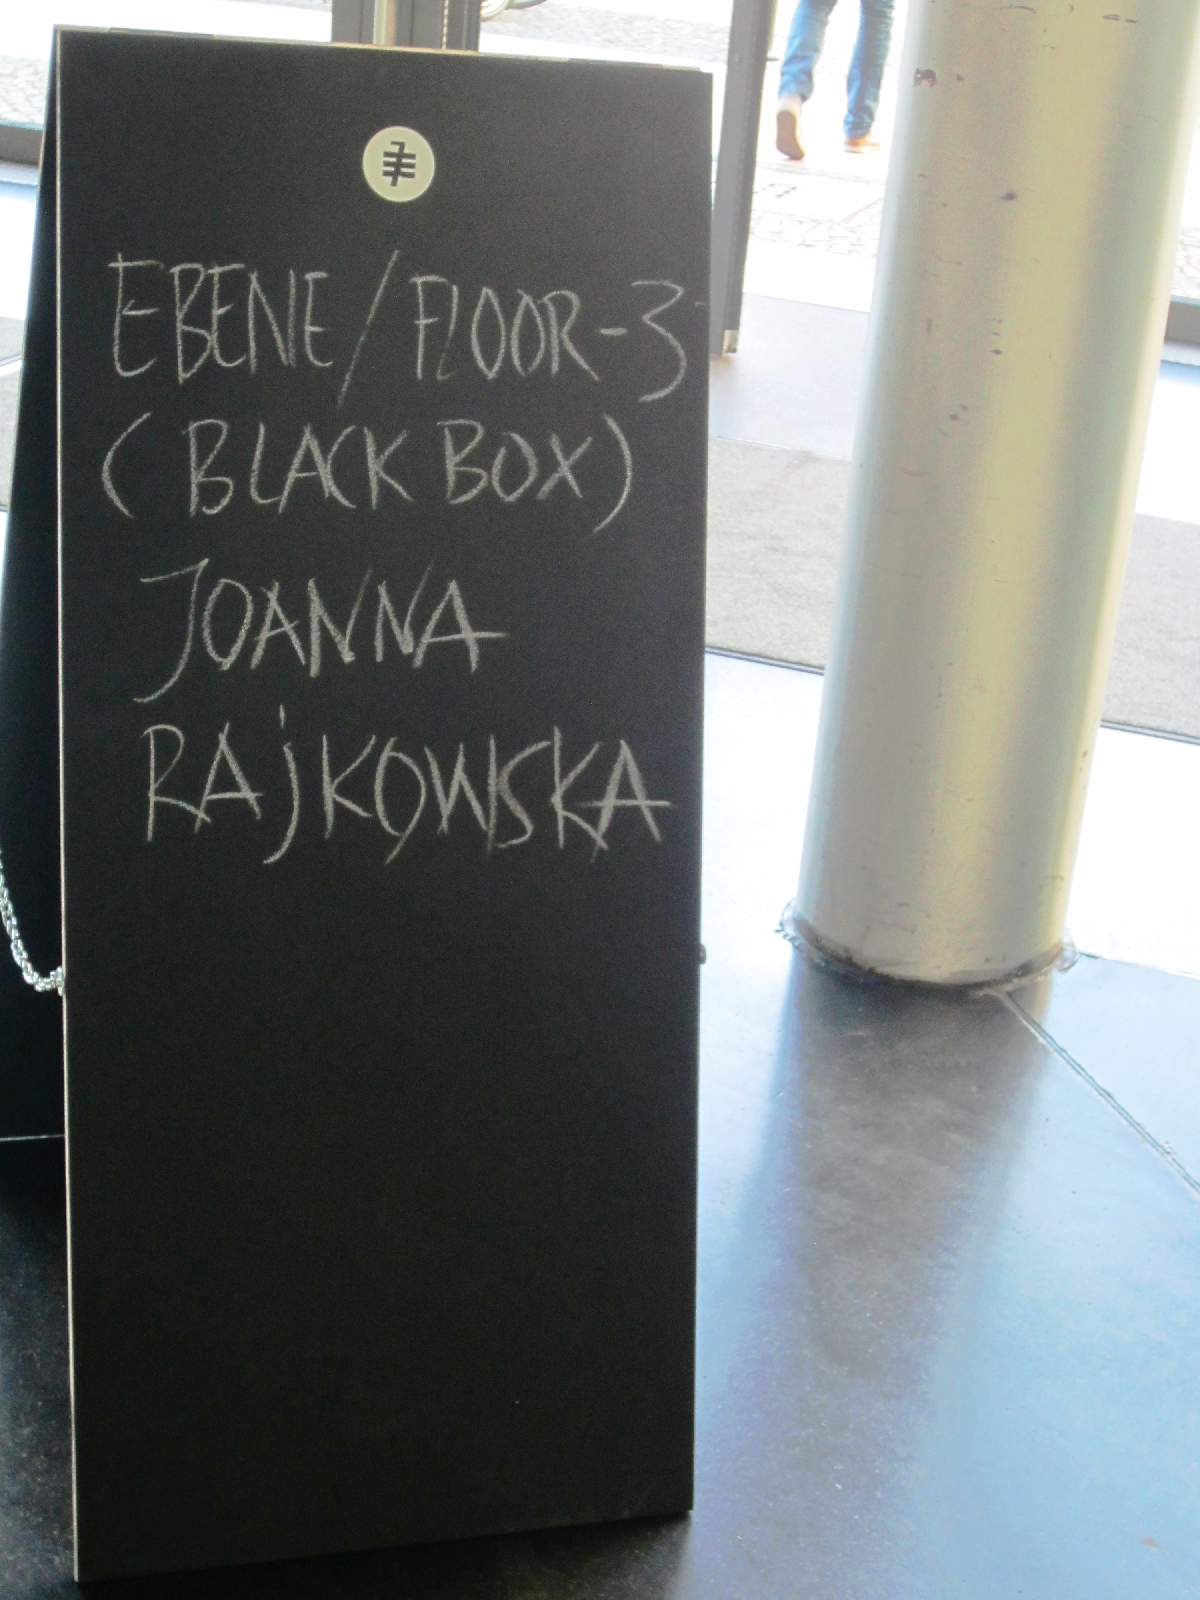 EBENE/FLOOR-3
(BLACK BOX)
JOANNA
RAjKOWSKA